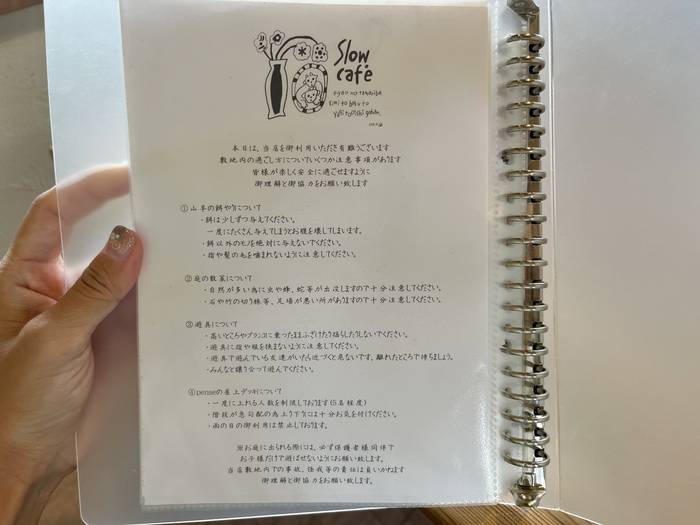 Slow
café
kimi to boku to
本日は、当店を御利用いただき有難うございます
敷地内の過ごし方についていくつか注意事項があります
皆様が楽しく安全に過ごせますように
御理解と御協力をお願い致します
①山羊の餌やりについて
・餌は少しずつ与えてください。
一度にたくさん与えてしまうとお腹を壊してしまいます。
・餌以外のモノを絶対に与えないでください。
・指や髪の毛を噛まれないように注意してください。
②庭の散策について
・自然が多い為に虫や蜂、蛇等が出没しますので十分注意してください。
・石や竹の切り株等、足場が悪い所がありますので十分注意してください。
③遊具について
・高いところやブランコに乗ったままふざけたり揺らしたりしないでください。
・遊具に指や服を挟まないように注意してください。
・遊具で遊んでいる友達がいたら近づくと危ないです。離れたところで待ちましょう。
・みんなと譲り合って遊んでください。
④penseの屋上デッキについて
・一度に上れる人数を制限しております(5名程度)
・階段が急勾配の為上り下りには十分お気を付けください。
・雨の日の御利用は禁止しております。
※お庭に出られる際には、必ず保護者様同伴で
お子様だけで遊ばせないようにお願い致します。
当店敷地内での事故、怪我等の責任は負いかねます
御理解と御協力をお願い致します。